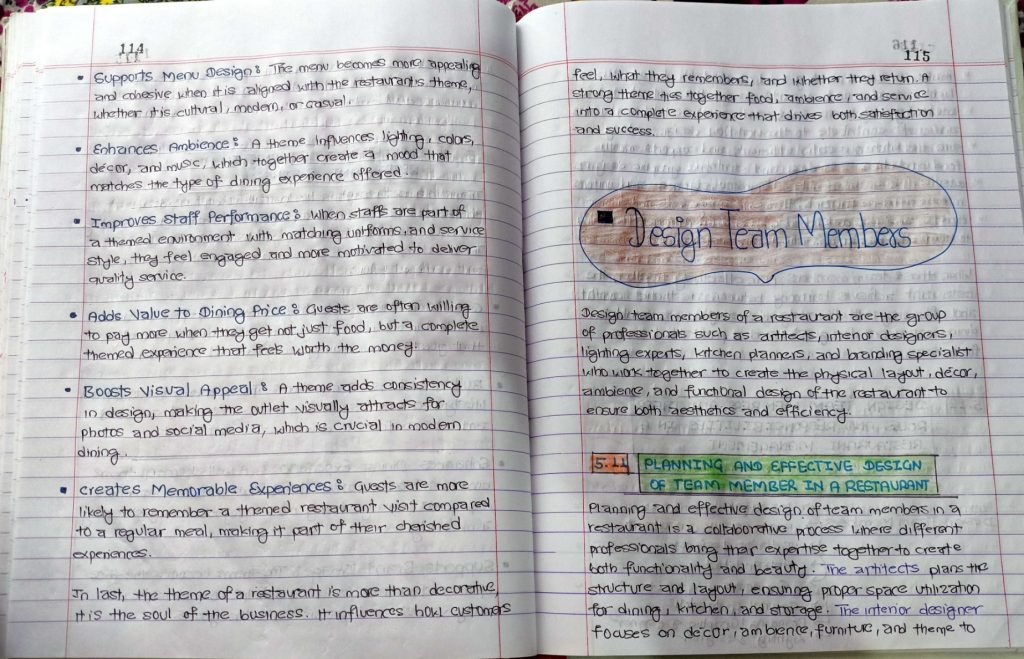 114
• Supports Menu Design : The menu becomes more appealing
and cohesive when it is aligned with the restaurant's theme,
whether it is cultural, modern, or casual.
• Enhances Ambience : A theme influences lighting, colors,
décor, and music, which together create a mood that
matches the type of dining experience offered.
• Improves Staff Performance : When staffs are part of
a themed environment with matching uniforms and service
style, they feel engaged and more motivated to deliver
quality service.
• Adds Value to Dining Price : Guests are often willing
to pay more when they get not just food, but a complete
themed experience that feels worth the money.
• Boosts Visual Appeal : A theme adds consistency
in design, making the outlet visually attracts for
photos and social media, which is crucial in modern
dining.
• Creates Memorable Experiences : Guests are more
likely to remember a themed restaurant visit compared
to a regular meal, making it part of their cherished
experiences.
In last, the theme of a restaurant is more than decorative,
it is the soul of the business. It influences how customers
115
feel, what they remembers, and whether they return. A
strong theme ties together food, ambience, and service
into a complete experience that drives both satisfaction
and success.
Design Team Members
Design team members of a restaurant are the group
of professionals such as artitects, interior designers,
lighting experts, kitchen planners, and branding specialist
who work together to create the physical layout, décor,
ambience, and functional design of the restaurant to
ensure both aesthetics and efficiency.
5.11 PLANNING AND EFFECTIVE DESIGN
OF TEAM MEMBER IN A RESTAURANT
Planning and effective design of team members in a
restaurant is a collaborative process where different
professionals bring their expertise together to create
both functionality and beauty. The artitects plans the
structure and layout, ensuring proper space utilization
for dining, kitchen, and storage. The interior designer
focuses on décor, ambience, furniture, and theme to